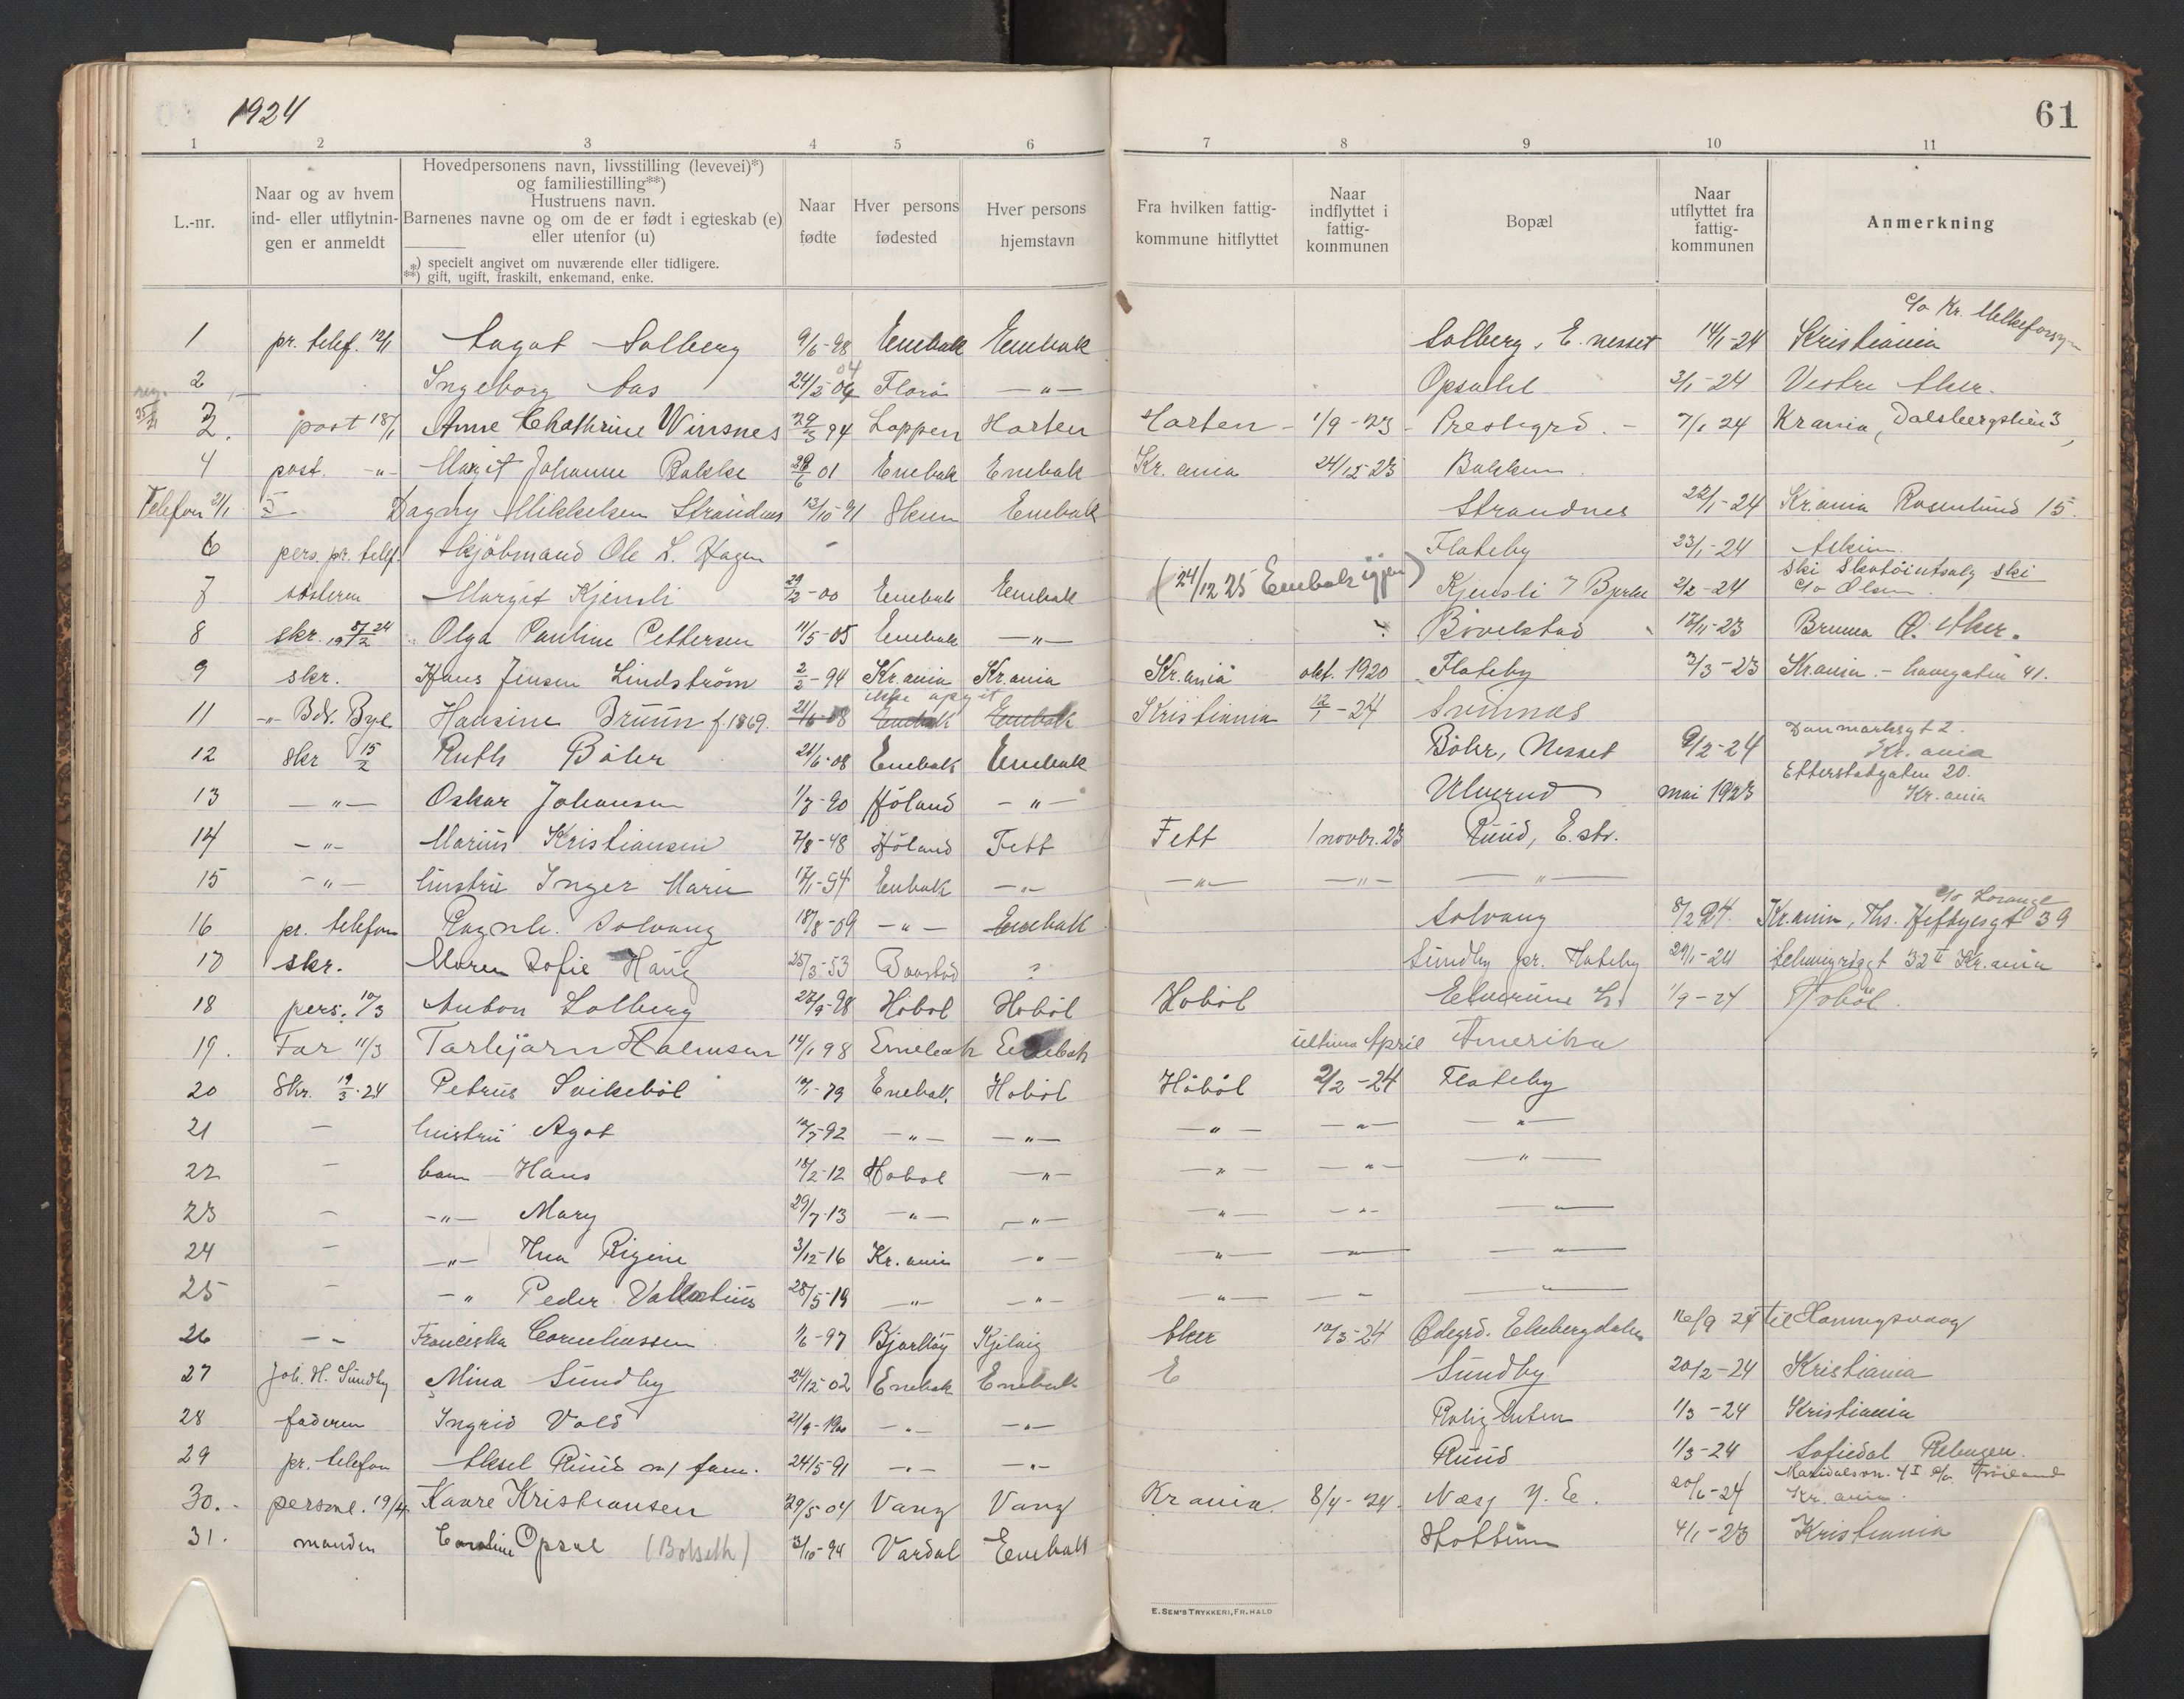 1924
61
1 2 3 4 5 6 7 8 9 10 11
L.-nr.
Naar og av hvem ind- eller utflytnin-gen er anmeldt
Hovedpersonens navn, livsstilling (levevei)*)
og familiestilling**)
Hustruens navn.
Barnenes navne og om de er født i egteskab (e)
eller utenfor (u)
*) specielt angivet om nuværende eller tidligere.
**) gift, ugift, fraskilt, enkemand, enke.
Naar fødte
Hver persons fødested
Hver persons hjemstavn
Fra hvilken fattig-kommune hitflyttet
Naar indflyttet i fattig-kommunen
Bopæl
Naar utflyttet fra fattig-kommunen
Anmerkning
c/o Kr. Melkeforsyn
1 pr. telef. 12/1 Aagot Solberg 9/6-98 Enebak Enebak Solberg, E. nesset 14/1-24 Kristiania
2 Ingeborg Aas 24/5 04 Florø -"- Opsahl 3/1-24 Vestre Aker.
3. post 18/1 Anne Chathrine Winsnes 29/3 94 Loppen Horten Horten - 1/9-23 - Prestegrd. - 7/1 24 Krania, Dalsbergstien 3
4 post. -"- Margit Johanne Bakke 28/6 01 Enebak Enebak Kr. ania 24/12-23 Bakken
Telefon 21/1 5 Dagny Mikkelsen Strandnes 13/10-91 Skien Enebak Strandnes 22/1-24 Kr.ania Rosenlund 15.
6 pers. pr. telef. Skjöbmand Ole L. Hagen - Flateby 23/1-24 Askim
7 søsteren Margit Kjensli 29/2-00 Enebak Enebak (24/12 25 Enebak igjen) Kjensli 7 Bjerke 2/2-24 Ski Skotöiutsalg Ski c/o Olsen.
8 skr. Olga Pauline Pettersen 11/5-05 Enebak -"- Bövelstad 12/11-23 Bruma Ø. Aker.
9 skr. Hans Jensen Lindström 2/2-94 Kr.ania Kr.ania Kr.ania okt. 1920 Flateby 2/3-23 Kr.ania -
ikke opgit
11 -"- Bdr. Bye Hansine Bruun f. 1869. 21/6-08 Enebak Enebak Kristiania 12/1-24 Svinnas
12 Skr 15/2 Ruth Böhr 21/6-08 Enebak Enebak Böhr, Nesset 9/2-24 Danmarksgt 2. Kr. ania
13 -"- Oskar Johansen 1/7-90 Höland -"- Ulverud mai 1923 Etterstadgaten 20. Kr. ania
14 -"- Marius Kristiansen 7/8-48 Höland Fett Fett 1 novbr. 23 Ruud, E. str.
15 -"- hustru Inger Marie 17/1-54 Enbak -"- -"- -"- -"-
16 pr. telefon Ragnh. Solvang 18/8-09 -"- Enebak Solvang 8/2 24. Kr.ania, Ths. Heftyesgt 39
17 skr. Maren Sofie Haug 25/3-53 Baastad ? Sundby pr. Flateby 29/1-24 Schweigårdsgt 32 II Kr.ania
18 pers. 10/3 Anton Solberg 27/9-98 Höbol Höböl Höböl 1/9-24 Höböl.
19. Far 11/3 Torbjørn Holmsen 14/1 98 Enebak Enebak ultimo April Amerika
20 Skr. 19/3-24 Petrus Svikeböl 10/1-79 Enebak Höböl Höböl 2/2-24 Flateby
21 - hustru Agot 10/7-92 -"- -"- -"- -"- -"-
22 - barn Hans 18/2-12 Höbol -"- -"- -"- -"-
23 - -"- Mary 29/7-13 -"- -"- -"- -"- -"-
24 - -"- Thea Rigine 3/12-16 Kr. ania -"- -"- -"- -"-
25 - -" Peder 28/5-19 -"- -"- -"- -"- -"-
26 -- Franciska Corneliussen 1/6-97 Bjarköy Kjelvig Aker 10/3-24 Ödegrd. Ekebergdalen 16/9 24 til Honningsvaag
27 Joh. H. Sundby Mina Sundby 24/12-02 Enebak Enebak E Sundby 20/2-24 Kristiania
28 faderen Ingrid Vold 21/9-1900 -"- -"- Roligheten 1/3-24 Kristiania
29 pr. telefon Aksel Ruud m/ fam. 24/5-91 -"- -"- Ruud 1/3-24 Sofiedal
30.- personl. 19/4. Kaare Kristiansen 29/5 04 Vang Vang Krania. 8/4-24. Næs Y. E. 20/6-24 Maridalsvn. 4 I c/o Kr. ania.
31. manden Caroline Opsal (Bolseth) 3/10-94 Vardal Enebak 4/1-23 Kristiania
E. SEM'S TRYKKERI, FR.HALD